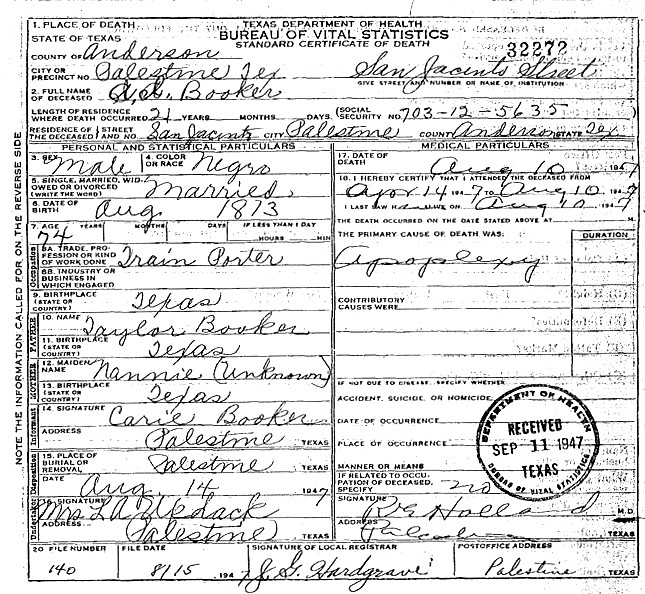 1. PLACE OF DEATH
STATE OF TEXAS
TEXAS DEPARTMENT OF HEALTH
BUREAU OF VITAL STATISTICS
STANDARD CERTIFICATE OF DEATH
32272
COUNTY OF Anderson
CITY OR PRECINCT NO. Palestine Tex San Jacinto Street
GIVE STREET AND NUMBER OR NAME OF INSTITUTION
2. FULL NAME OF DECEASED Booker
LENGTH OF RESIDENCE WHERE DEATH OCCURRED 21 YEARS MONTHS DAYS (SOCIAL SECURITY NO. 703-12-5635)
RESIDENCE OF THE DECEASED STREET AND NO. San Jacinto CITY Palestine COUNTY Anderson STATE Tex
NOTE THE INFORMATION CALLED FOR ON THE REVERSE SIDE
PERSONAL AND STATISTICAL PARTICULARS
3. SEX Male 4. COLOR OR RACE Negro
5. SINGLE, MARRIED, WIDOWED OR DIVORCED (WRITE THE WORD) Married
6. DATE OF BIRTH Aug. 1873
7. AGE YEARS MONTHS DAYS IF LESS THAN 1 DAY
74 HOURS MIN
Occupation
8A. TRADE, PROFESSION OR KIND OF WORK DONE Train Porter
8B. INDUSTRY OR BUSINESS IN WHICH ENGAGED
9. BIRTHPLACE (STATE OR COUNTRY) Texas
FATHER
10. NAME Taylor Booker
11. BIRTHPLACE (STATE OR COUNTRY) Texas
MOTHER
12. MAIDEN NAME Nannie (Unknown)
13. BIRTHPLACE (STATE OR COUNTRY) Texas
Informant
14. SIGNATURE Carie Booker
ADDRESS Palestine TEXAS
Disposition
15. PLACE OF BURIAL OR REMOVAL Palestine TEXAS
DATE Aug. 14 1947
Undertaker
16. SIGNATURE Mrs L A
ADDRESS Palestine TEXAS
MEDICAL PARTICULARS
17. DATE OF DEATH Aug 10 1947
I HEREBY CERTIFY THAT I ATTENDED THE DECEASED FROM
Apr 14 1947 TO Aug 10 1947
I LAST SAW H ALIVE ON Aug 10 1947
THE DEATH OCCURRED ON THE DATE STATED ABOVE AT M.
THE PRIMARY CAUSE OF DEATH WAS: DURATION
Apoplexy
CONTRIBUTORY CAUSES WERE
IF NOT DUE TO DISEASE, SPECIFY WHETHER
ACCIDENT, SUICIDE, OR HOMICIDE
DATE OF OCCURRENCE
PLACE OF OCCURRENCE
MANNER OR MEANS
IF RELATED TO OCCUPATION OF DECEASED, SPECIFY no
SIGNATURE Holland M.D.
ADDRESS TEXAS
DEPARTMENT OF HEALTH
RECEIVED
SEP 11 1947
TEXAS
BUREAU OF VITAL STATISTICS
20 FILE NUMBER FILE DATE SIGNATURE OF LOCAL REGISTRAR POSTOFFICE ADDRESS
140 8/15 1947 J. G. Hardgrave Palestine TEXAS